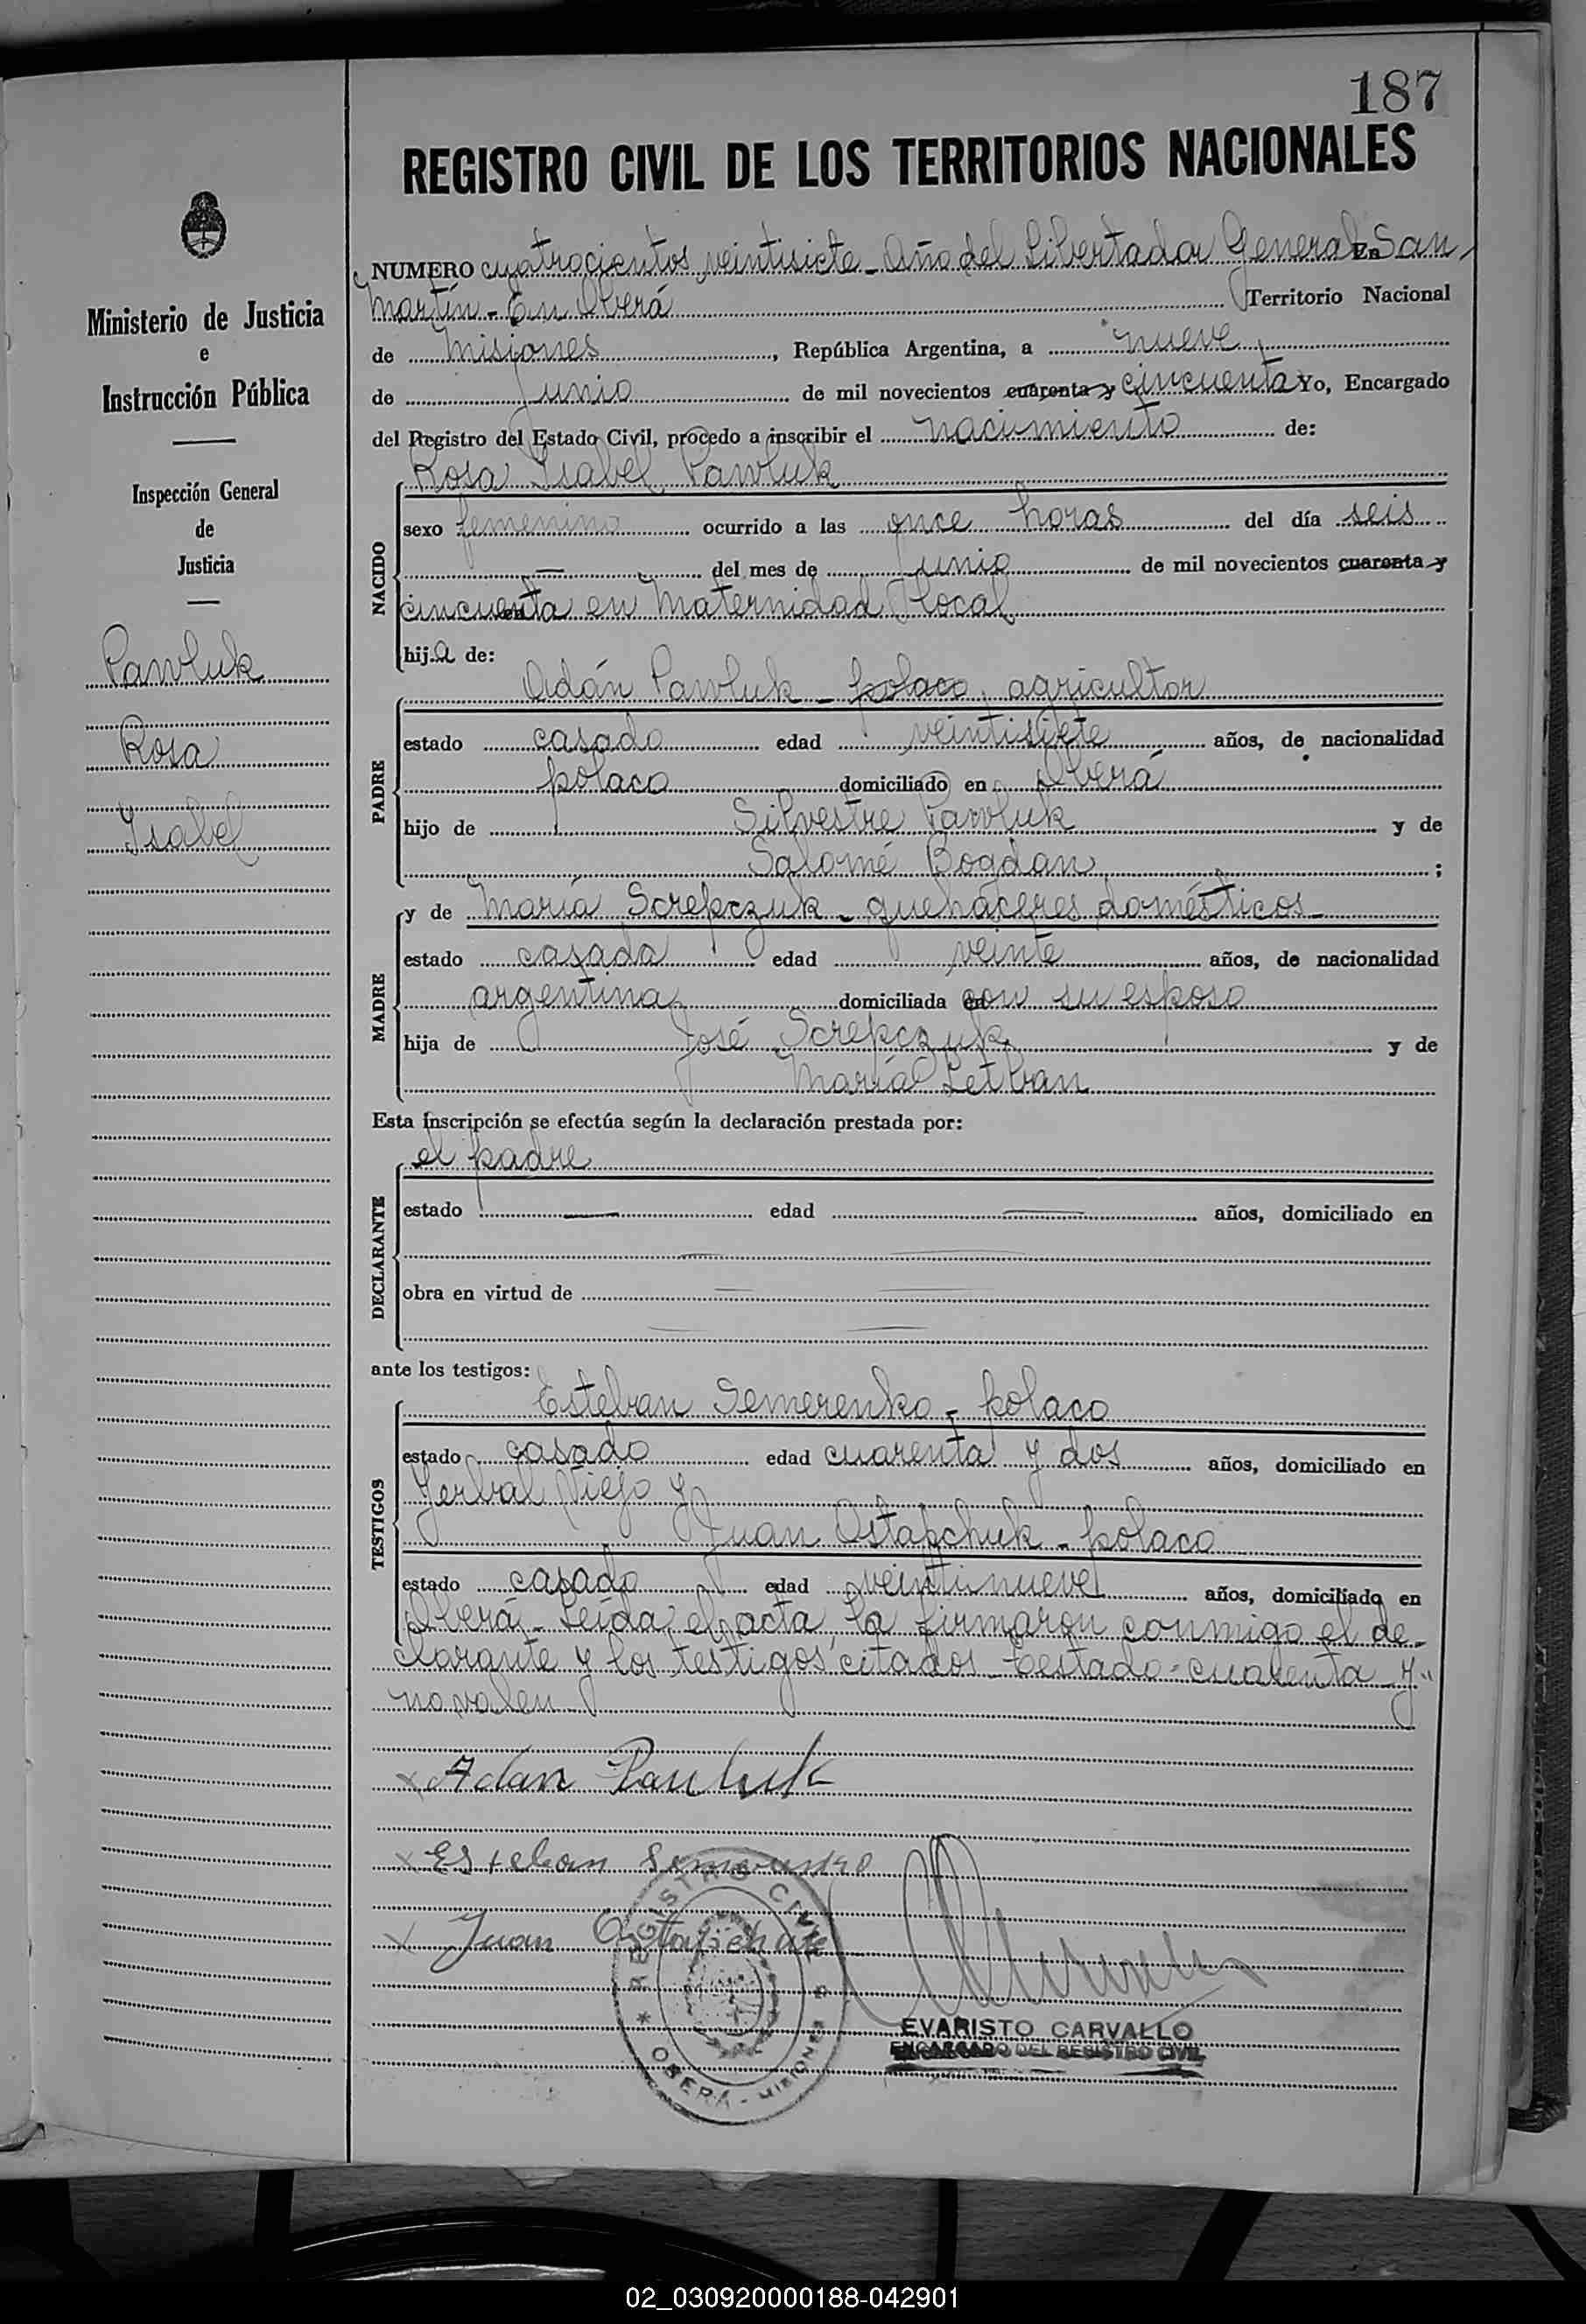 187
REGISTRO CIVIL DE LOS TERRITORIOS NACIONALES
Ministerio de Justicia
e
Instrucción Pública
Inspección General
de
Justicia
Pawluk
Rosa
Isabel
NUMERO cuatrocientos veintisiete - Año del Libertador General En San
Martín - En Oberá Territorio Nacional
de Misiones, República Argentina, a nueve
de junio de mil novecientos cuarenta y cincuenta Yo, Encargado
del Registro del Estado Civil, procedo a inscribir el nacimiento de:
Rosa Isabel Pawluk
NACIDO
sexo femenino ocurrido a las once horas del día seis
— del mes de junio de mil novecientos cuarenta y
cincuenta en Maternidad local
hija de:
Adán Pawluk - polaco, agricultor
PADRE
estado casado edad veintisiete años, de nacionalidad
polaco domiciliado en Oberá
hijo de Silvestre Pawluk y de
Salomé Bogdan ;
y de María Screpczuk - quehaceres domésticos -
MADRE
estado casada edad veinte años, de nacionalidad
argentina domiciliada en con su esposo
hija de José Screpczuk y de
María
Esta inscripción se efectúa según la declaración prestada por:
el padre
DECLARANTE
estado — edad — años, domiciliado en
obra en virtud de
ante los testigos:
Esteban Semerenko - polaco
TESTIGOS
estado casado edad cuarenta y dos años, domiciliado en
Yerbal Viejo y
Juan Ostapchuk - polaco
estado casado edad veintinueve años, domiciliado en
Oberá - Leída el acta, la firmaron conmigo el de-
clarante y los testigos citados - Testado - cuarenta y"
no valen
x Adan Pauluk
x Esteban
x Juan
REGISTRO CIVIL
* OBERÁ - MISIONES *
EVARISTO CARVALLO
ENCARGADO DEL REGISTRO CIVIL
02_030920000188-042901